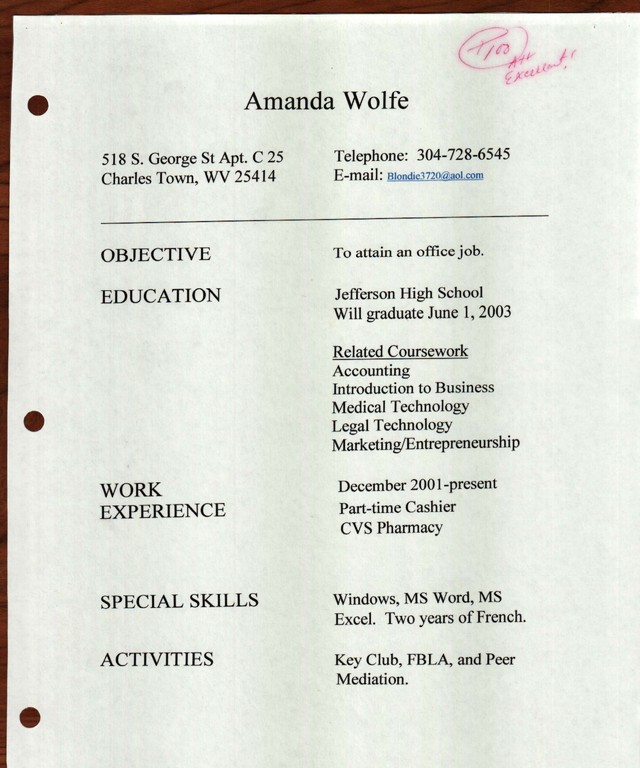 +100
A++
Excellent!
Amanda Wolfe
518 S. George St Apt. C 25
Charles Town, WV 25414
Telephone: 304-728-6545
E-mail: Blondie3720@aol.com
OBJECTIVE
To attain an office job.
EDUCATION
Jefferson High School
Will graduate June 1, 2003
Related Coursework
Accounting
Introduction to Business
Medical Technology
Legal Technology
Marketing/Entrepreneurship
WORK
EXPERIENCE
December 2001-present
Part-time Cashier
CVS Pharmacy
SPECIAL SKILLS
Windows, MS Word, MS
Excel. Two years of French.
ACTIVITIES
Key Club, FBLA, and Peer
Mediation.